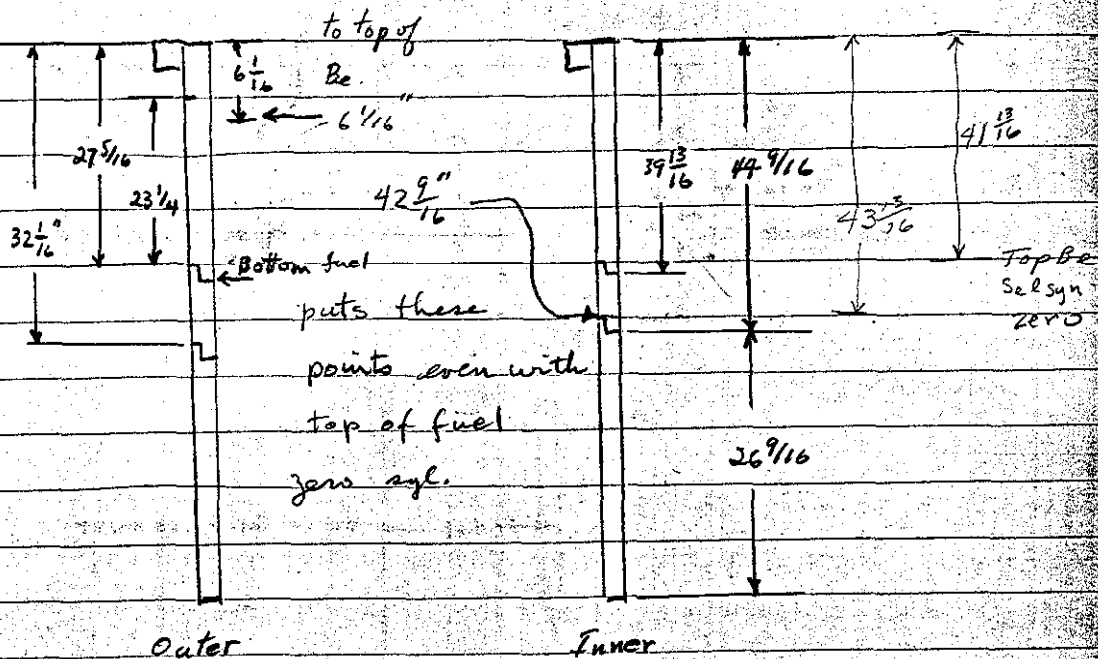 to top of
Be.
6 1/16
6 1/16"
27 5/16
23 1/4
32 1/16"
42 9/16"
Bottom fuel
puts these
points even with
top of fuel
zero syl.
39 13/16
44 9/16
43 13/16
41 13/16
Top Be
Selsyn
zero
26 9/16
Outer
Inner